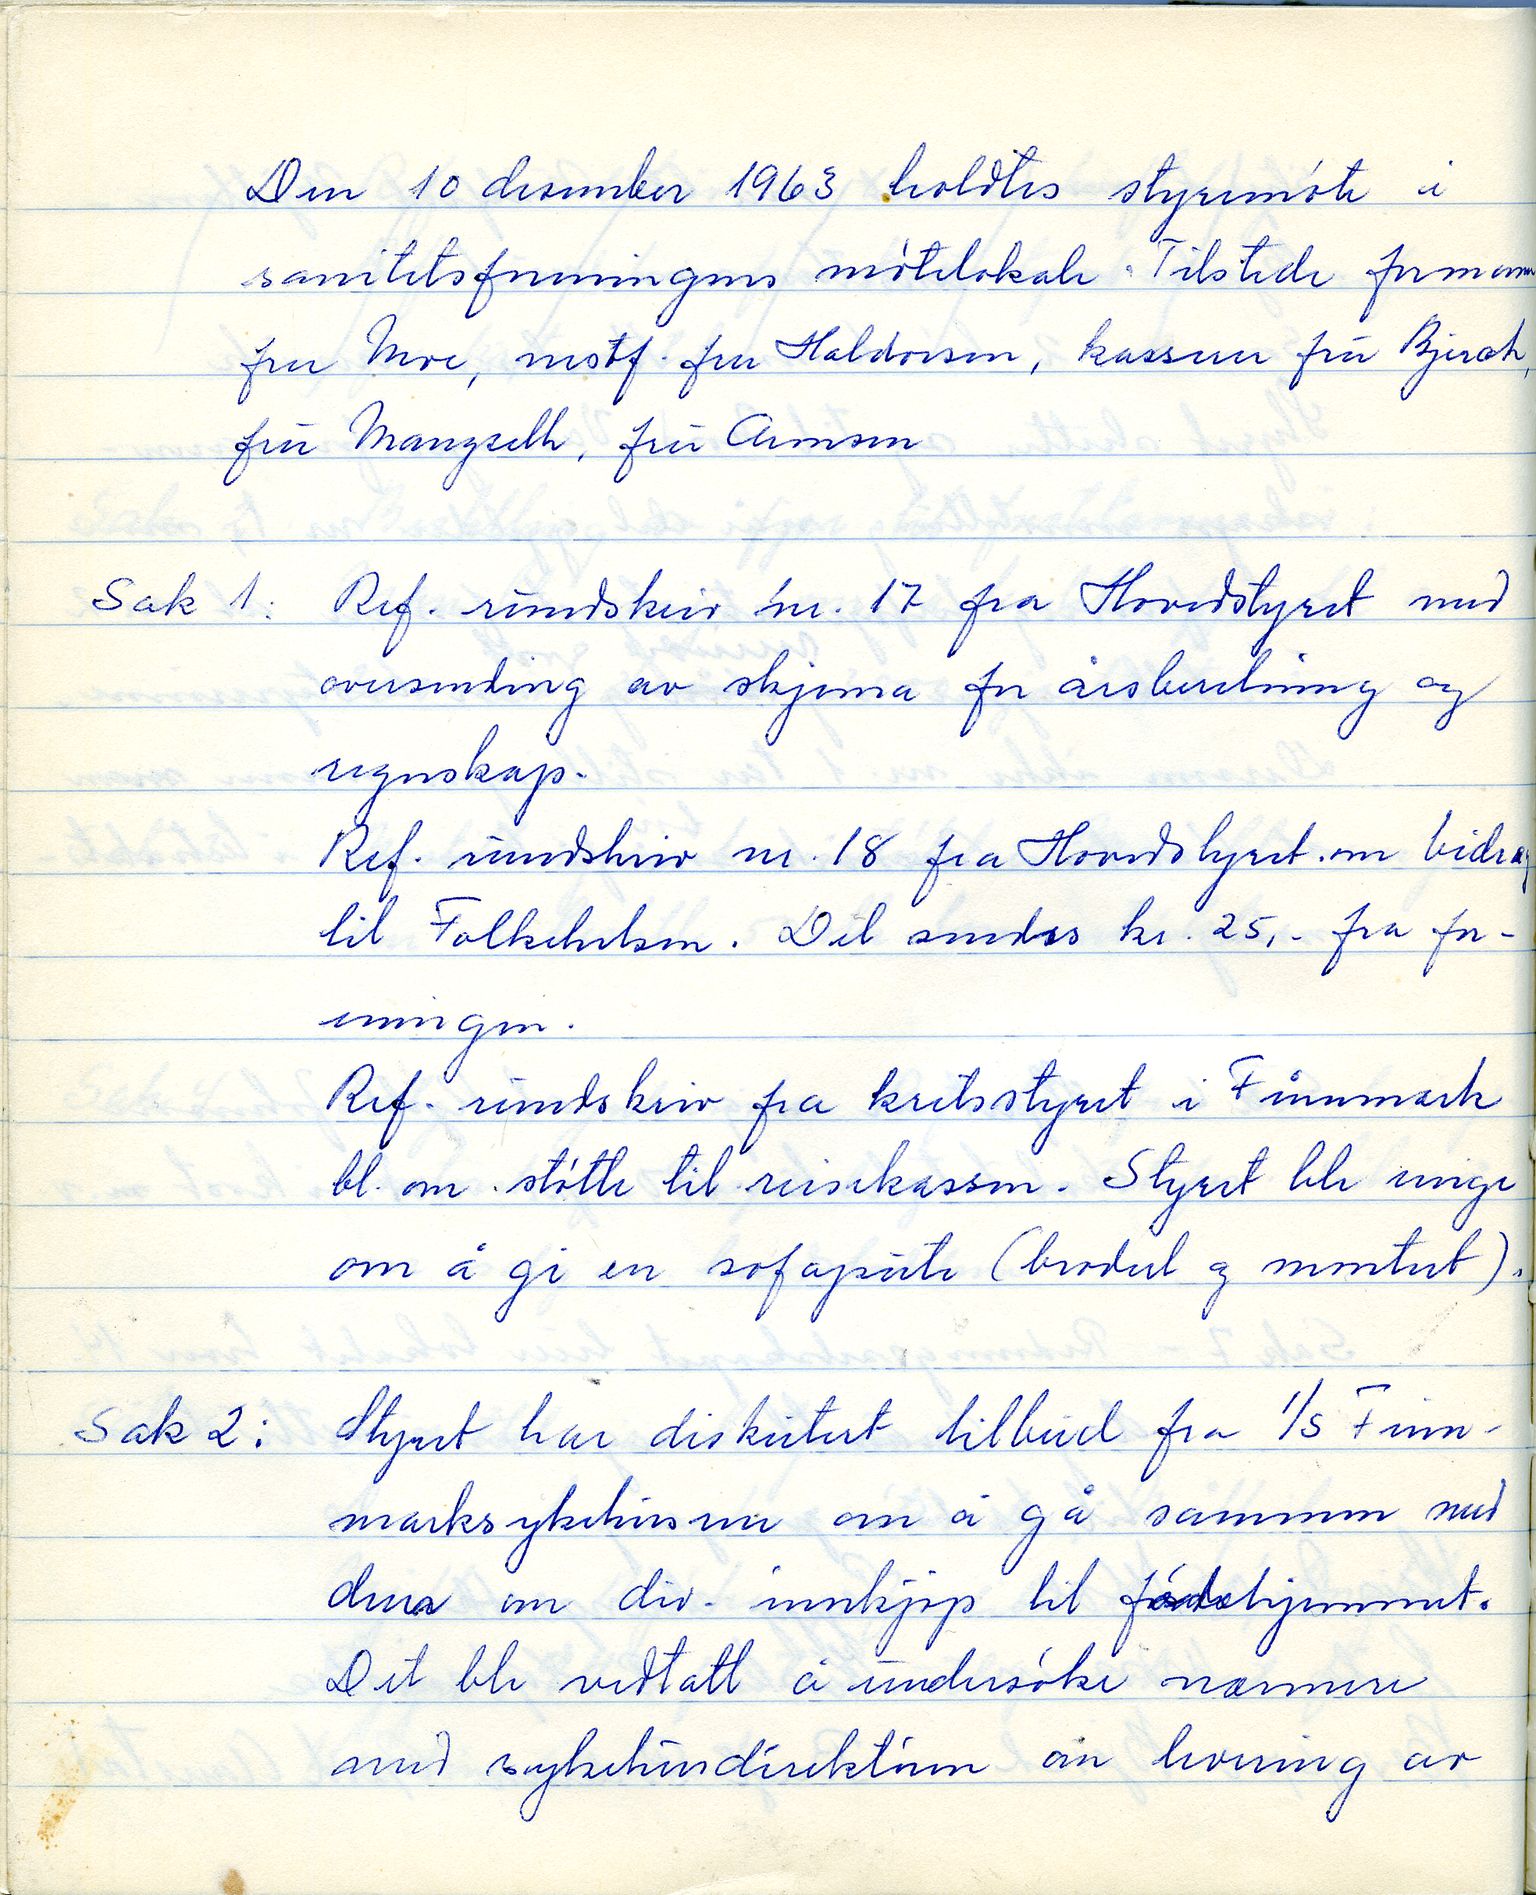 Den 10 desember 1963 holdtes styremöte i
sanitetsforeningens mötelokale. Tilstede formann
fru Moe, nestf. fru Haldorsen, kasserer fru Bjerck,
fru Mangseth, fru Arnesen
Sak 1: Ref. rundskriv nr. 17 fra Hovedstyret med
oversending av skjema for årsberetning og
regnskap.
Ref. rundskriv nr. 18 fra Hovedstyret om bidrag
til Folkehelsen. Det sendes kr. 25,- fra for-
eningen.
Ref. rundskriv fra kretsstyret i Finnmark
bl. om støtte til reisekassen. Styret ble enige
om å gi en sofapute (brodert og montert).
Sak 2: Styret har diskutert tilbud fra I/S Finn-
marksykehusene om å gå sammen med
dem om div. innkjøp til fødehjemmet.
Det ble vedtatt å undersøke nærmere
med sykehusdirektøren om levering av